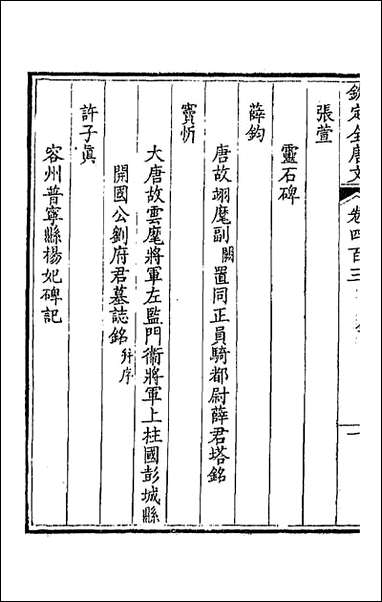 欽定全唐文
卷四百三
一
張萱
靈石碑
薛鈞
唐故翊麾副闕置同正員騎都尉薛君塔銘
竇忻
大唐故雲麾將軍左監門衛將軍上柱國彭城縣
開國公劉府君墓誌銘并序
許子真
容州普寧縣楊妃碑記